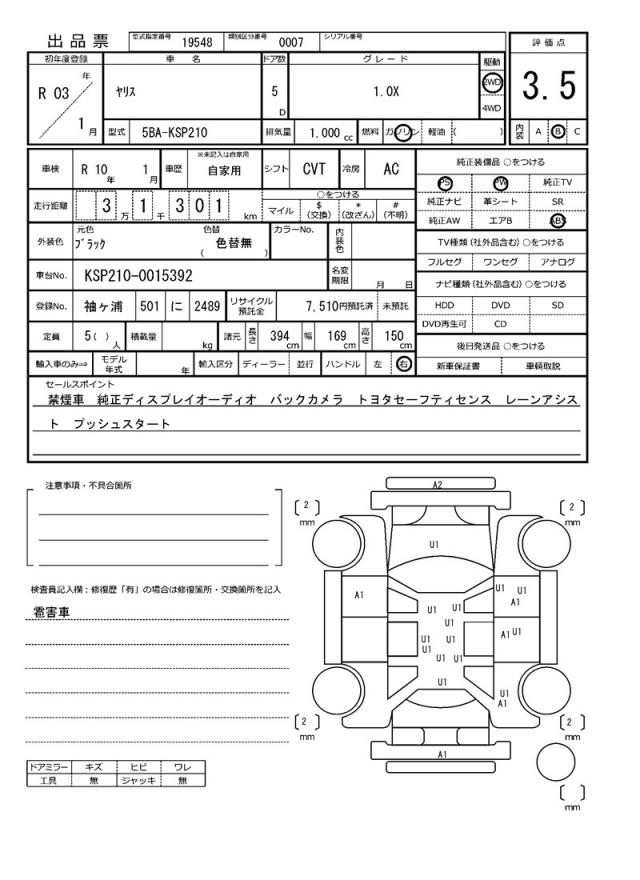 出品票 型式指定番号 19548 類別区分番号 0007 シリアル番号
初年度登録 車名 ドア数 グレード 駆動 評価点
R 03 年 1 月 ヤリス 5 D 1.0X 2WD 4WD 3.5
型式 5BA-KSP210 排気量 1.000 cc 燃料 ガソリン 軽油 ( ) 内装 A B C
車検 R 10 年 1 月 車歴 ※未記入は自家用 自家用 シフト CVT 冷房 AC
純正装備品 ○をつける
PS PW 純正TV
走行距離 3 万 1 千 3 0 1 km ○をつける
マイル $ (交換) * (改ざん) # (不明)
純正ナビ 革シート SR
純正AW エアB ABS
外装色 元色 ブラック 色替 ( 色替無 ) カラーNo. 内装色
TV種類(社外品含む)○をつける
フルセグ ワンセグ アナログ
車台No. KSP210-0015392 名変期限 月 日
ナビ種類(社外品含む)○をつける
登録No. 袖ヶ浦 501 に 2489 リサイクル預託金 7,510円預託済 未預託
HDD DVD SD
DVD再生可 CD
定員 5( ) 人 積載量 kg 諸元 長さ 394 cm 幅 169 cm 高さ 150 cm
後日発送品 ○をつける
輸入車のみ⇒ モデル年式 年 輸入区分 ディーラー 並行 ハンドル 左 右
新車保証書 車輌取説
セールスポイント
禁煙車 純正ディスプレイオーディオ バックカメラ トヨタセーフティセンス レーンアシス
ト プッシュスタート
注意事項・不具合箇所
検査員記入欄：修復歴「有」の場合は修復箇所・交換箇所を記入
雹害車
ドアミラー キズ ヒビ ワレ
工具 無 ジャッキ 無
A2
2 mm
2 mm
U1
A1
U1 U1
A1
U1 U1
U1
A1 U1
U1 U1
U1
U1 U1
U1
U1
A1
2 mm
2 mm
A1
mm